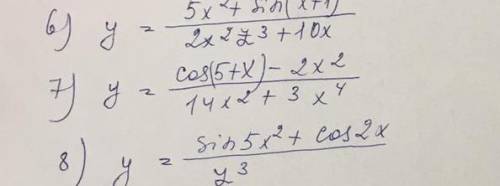 6) y = (5x² + sin(x+1)) / (2x²y³ + 10x)
7) y = (cos(5+x) - 2x²) / (14x² + 3x⁴)
8) y = (sin5x² + cos2x) / y³